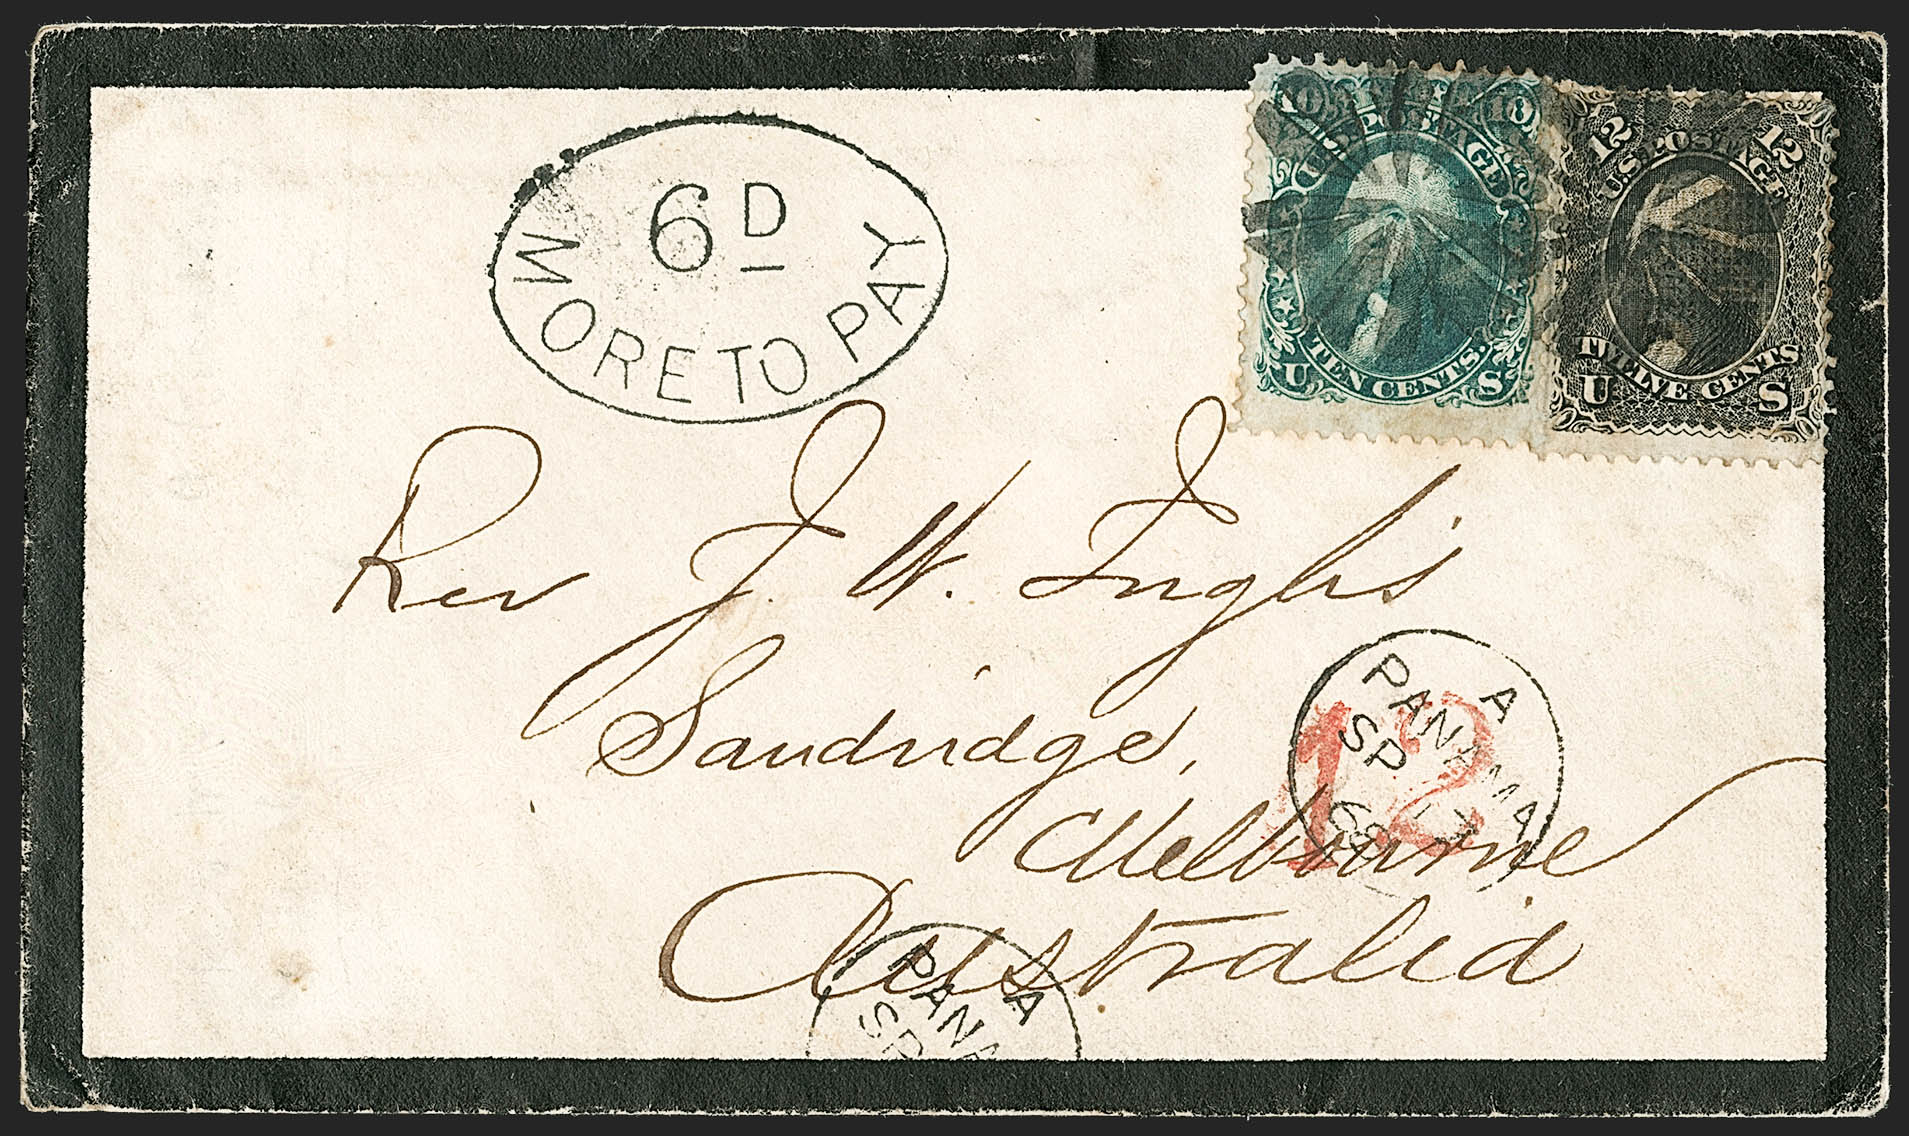 6D
MORE TO PAY
10 10
U.S. POSTAGE
TEN CENTS.
U S
12 12
U.S. POSTAGE
TWELVE CENTS
U S
Rev J. W. Inglis
Sandridge,
Melbourne
Australia
12
A
PANAMA
SP 17
68
A
PANA
SP